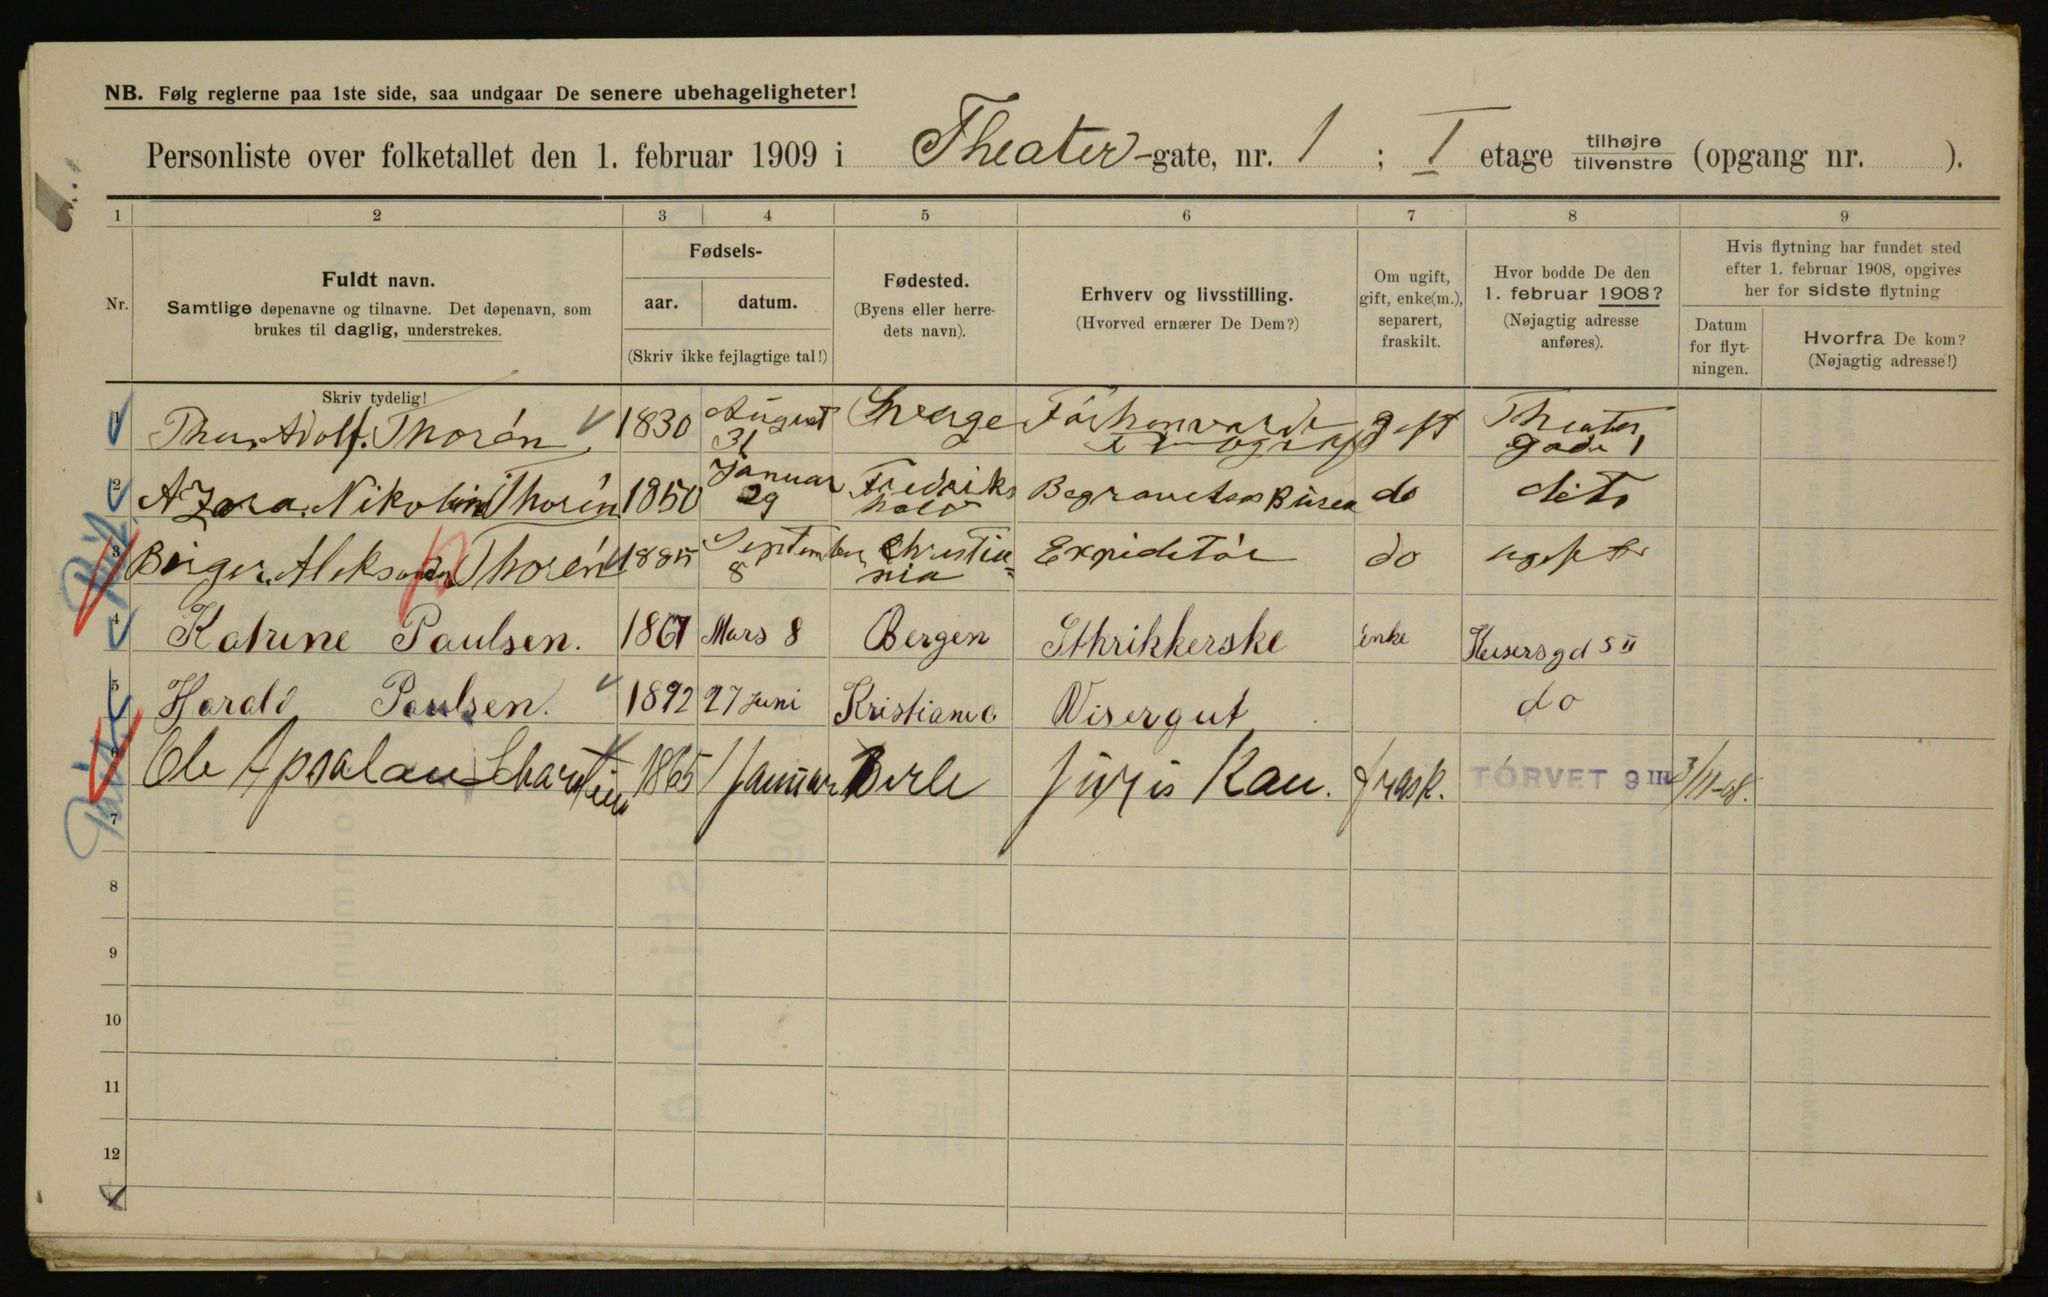 NB. Følg reglerne paa 1ste side, saa undgaar De senere ubehageligheter!
Personliste over folketallet den 1. februar 1909 i Theater-gate, nr. 1 ; I etage tilhøjre tilvenstre (opgang nr. ).
1 2 3 4 5 6 7 8 9
Nr.
Fuldt navn.
Samtlige døpenavne og tilnavne. Det døpenavn, som
brukes til daglig, understrekes.
Fødsels-
aar. datum.
(Skriv ikke fejlagtige tal!)
Fødested.
(Byens eller herre-
dets navn).
Erhverv og livsstilling.
(Hvorved ernærer De Dem?)
Om ugift,
gift, enke(m.),
separert,
fraskilt.
Hvor bodde De den
1. februar 1908?
(Nøjagtig adresse
anføres).
Hvis flytning har fundet sted
efter 1. februar 1908, opgives
her for sidste flytning
Datum
for flyt-
ningen.
Hvorfra De kom?
(Nøjagtig adresse!)
Skriv tydelig!
1 Adolf. Thorén 1830 August 31 gift Theater gade 1
2 Nikoline Thorén 1850 Januar 29 Fredriks hald do dito
3 Birger. Aleksander Thorén 1885 September 8 Christia= nia Expiditór do
4 Katrine Paulsen. 1861 Mars 8 Bergen Sthrikkerske Enke Keisersgd 5 II
5 Harald Paulsen. 1892 27 Juni Kristiania Visergut do
6 Ole 1865 1 Januar Juris Kan. frask. TORVET 9 III 3/11-08.
7
8
9
10
11
12